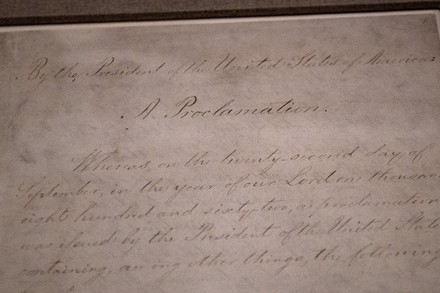 By the President of the United States of America:
A Proclamation.
Whereas, on the twenty-second day of
September, in the year of our Lord one thousand
eight hundred and sixty-two, a proclamation
was issued by the President of the United States
containing, among other things, the following